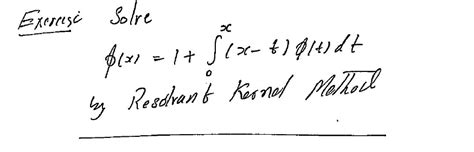 Exercise Solve
φ(x) = 1 + ∫₀ˣ (x - t) φ(t) dt
by Resolvant Kernel Method